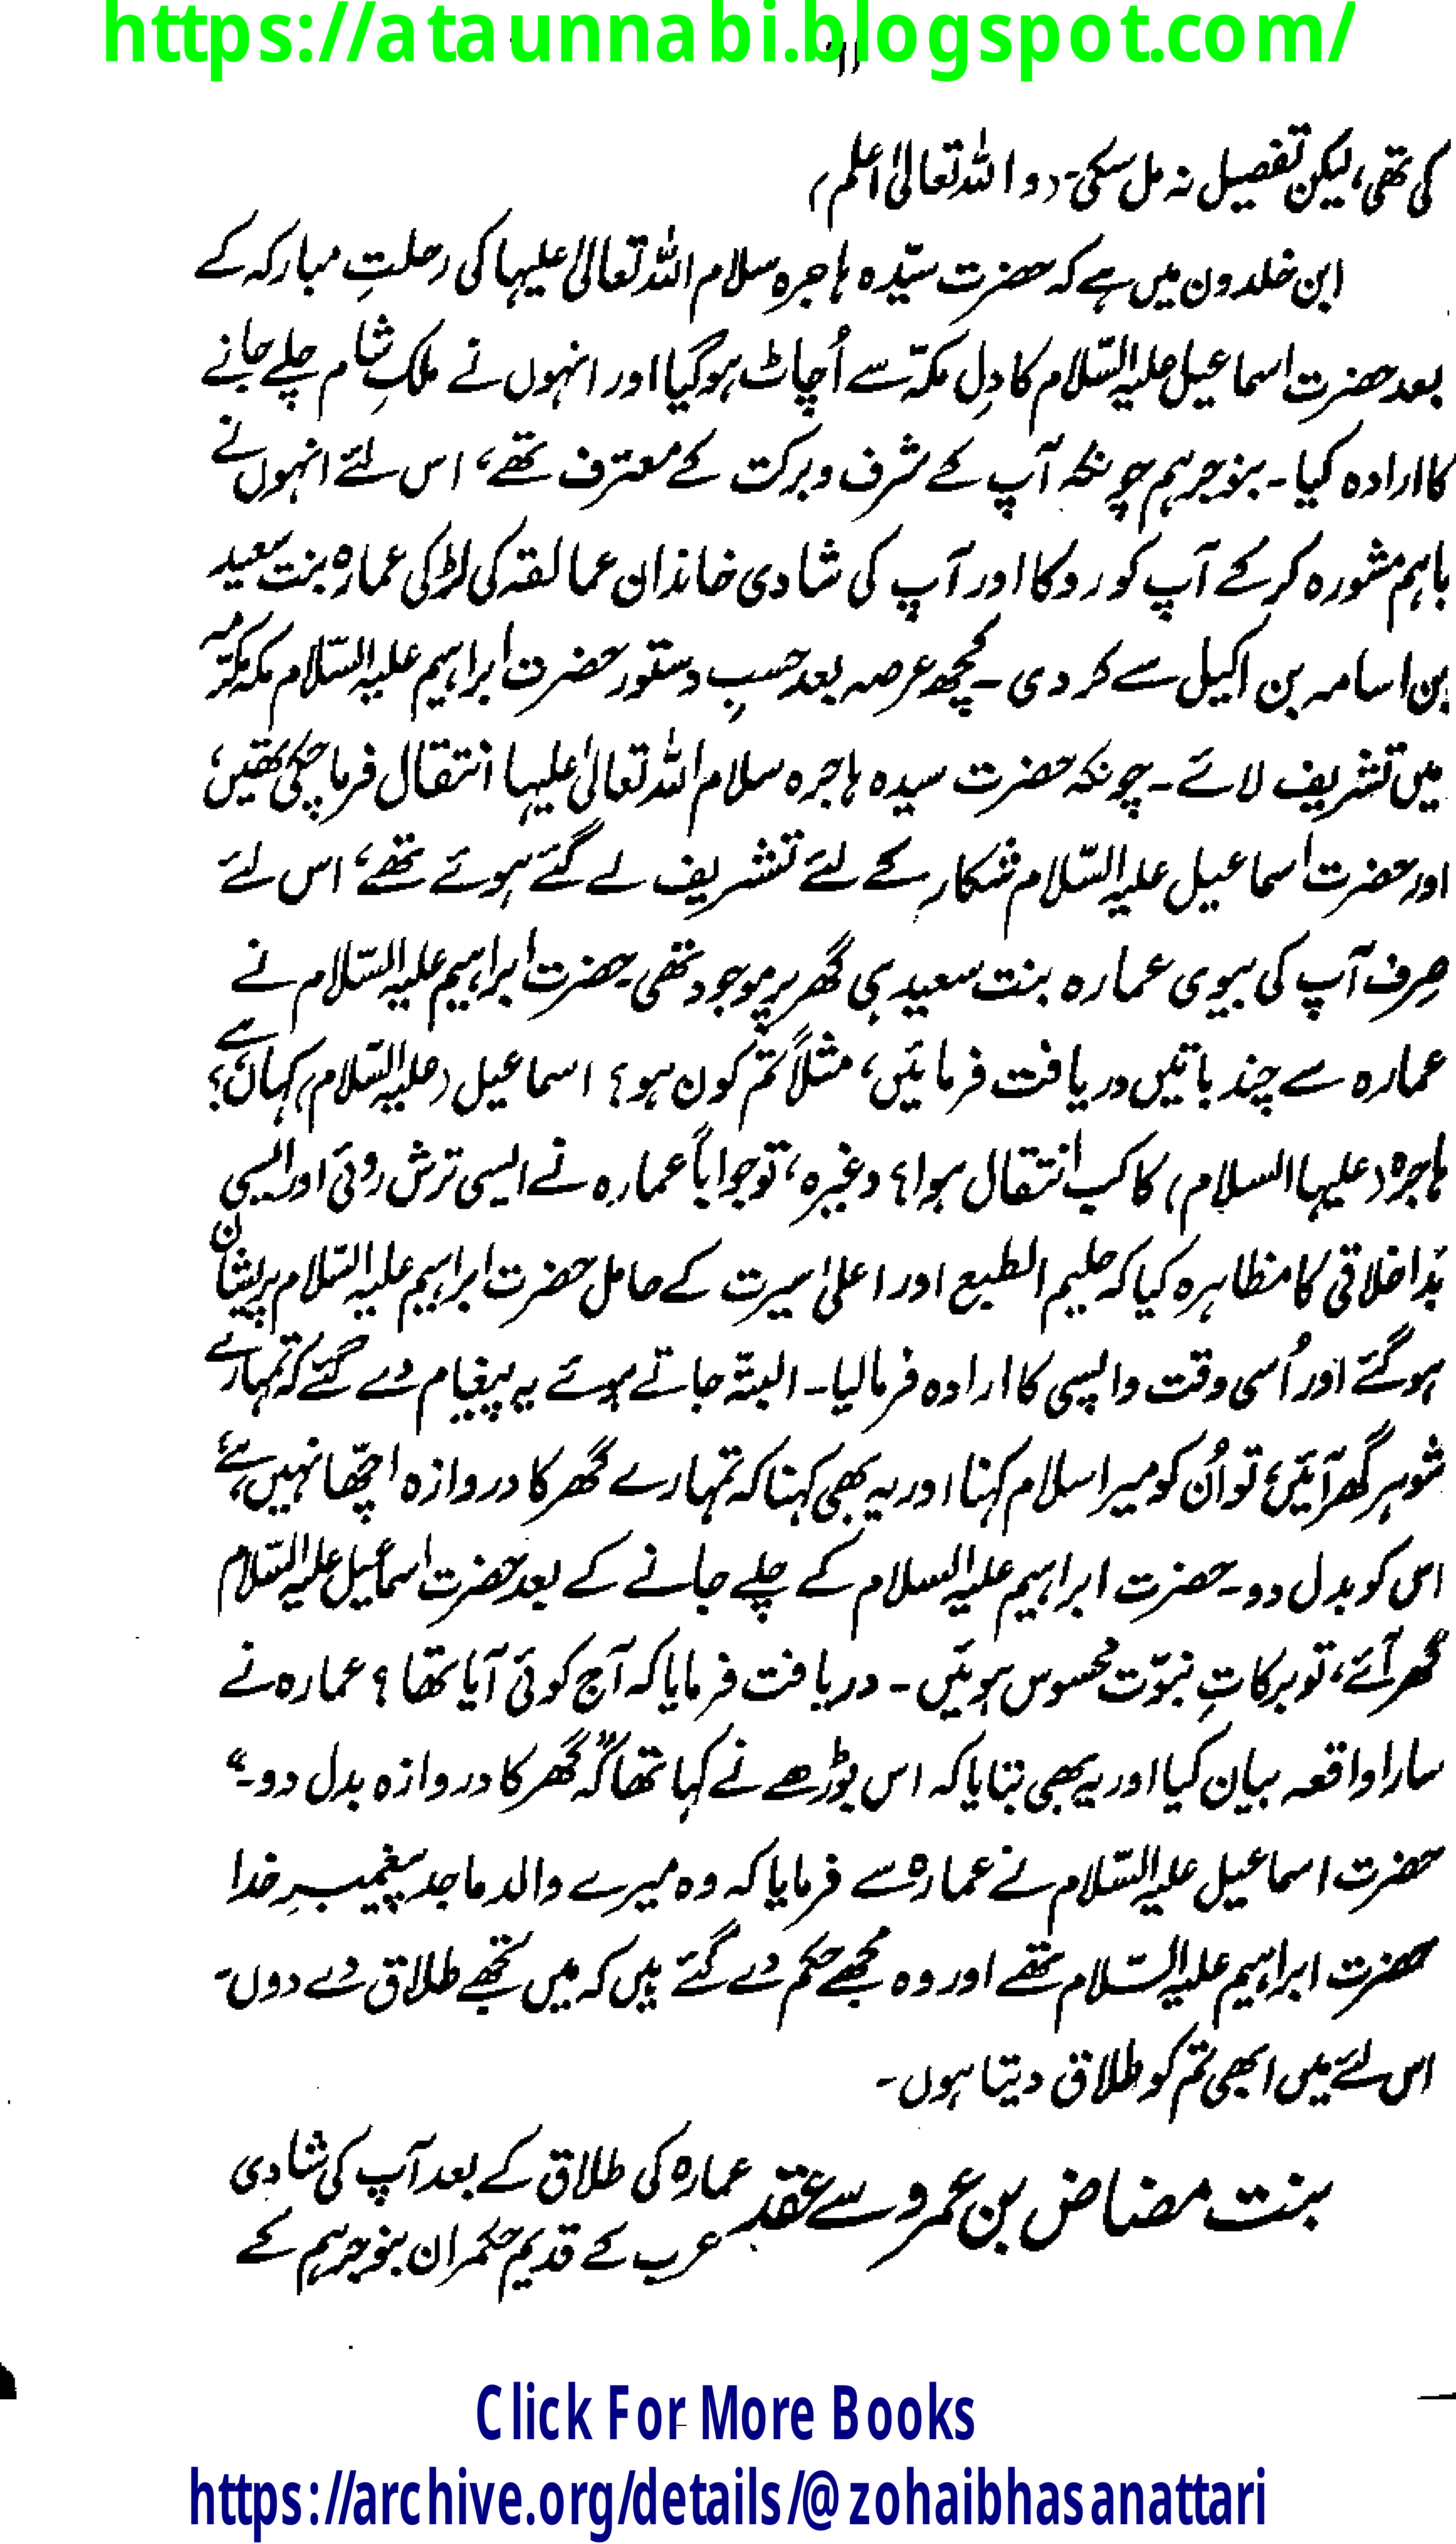 https://ataunnabi.blogspot.com/
کی تھی، لیکن تفصیل نہ مل سکی۔ (واللہ تعالیٰ اعلم)
ابن خلدون میں ہے کہ حضرت سیّدہ ہاجرہ سلام اللہ تعالیٰ علیہا کی رحلتِ مبارکہ کے
بعد حضرت اسماعیل علیہ السّلام کا دِل مکّہ سے اُچاٹ ہوگیا اور انہوں نے ملکِ شام چلے جانے
کا ارادہ کیا۔ بنو جرہم چونکہ آپ کے شرف و برکت کے معترف تھے، اس لئے انہوں نے
باہم مشورہ کرکے آپ کو روکا اور آپ کی شادی خاندان عمالقہ کی لڑکی عمارہ بنت سعید
بن اسامہ بن اکیل سے کر دی۔ کچھ عرصہ بعد حسبِ دستور حضرت ابراہیم علیہ السّلام مکہ مکرّمہ
میں تشریف لائے۔ چونکہ حضرت سیدہ ہاجرہ سلام اللہ تعالیٰ علیہا انتقال فرما چکی تھیں،
اور حضرت اسماعیل علیہ السّلام شکار کے لئے تشریف لے گئے ہوئے تھے، اس لئے
صِرف آپ کی بیوی عمارہ بنت سعید ہی گھر پر موجود تھی۔ حضرت ابراہیم علیہ السّلام نے
عمارہ سے چند باتیں دریافت فرمائیں، مثلاً تم کون ہو؟ اسماعیل (علیہ السّلام) کہاں ہے؟
ہاجرہ (علیہا السلام) کا کب انتقال ہوا؟ وغیرہ، تو جواباً عمارہ نے ایسی ترش روئی اور ایسی
بَد اخلاقی کا مظاہرہ کیا کہ حلیم الطبع اور اعلیٰ سیرت کے حامل حضرت ابراہیم علیہ السّلام پریشان
ہوگئے اور اُسی وقت واپسی کا ارادہ فرمالیا۔ البتّہ جاتے ہوئے یہ پیغام دے گئے کہ تمہارے
شوہر گھر آئیں، تو اُن کو میرا سلام کہنا اور یہ بھی کہنا کہ تمہارے گھر کا دروازہ اچھّا نہیں ہے،
اس کو بدل دو۔ حضرت ابراہیم علیہ السلام کے چلے جانے کے بعد حضرت اسماعیل علیہ السّلام
گھر آئے، تو برکاتِ نبوّت محسوس ہوئیں۔ دریافت فرمایا کہ آج کوئی آیا تھا؟ عمارہ نے
سارا واقعہ بیان کیا اور یہ بھی بتایا کہ اس بوڑھے نے کہا تھا کہ "گھر کا دروازہ بدل دو۔"
حضرت اسماعیل علیہ السّلام نے عمارہ سے فرمایا کہ وہ میرے والد ماجد پیغمبرِ خدا
حضرت ابراہیم علیہ السّلام تھے اور وہ مجھے حکم دے گئے ہیں کہ میں تجھے طلاق دے دوں۔
اس لئے میں ابھی تم کو طلاق دیتا ہوں۔
بنت مضاض بن عمرو سے عقد
عمارہ کی طلاق کے بعد آپ کی شادی
عرب کے قدیم حکمران بنو جرہم کے
Click For More Books
https://archive.org/details/@zohaibhasanattari